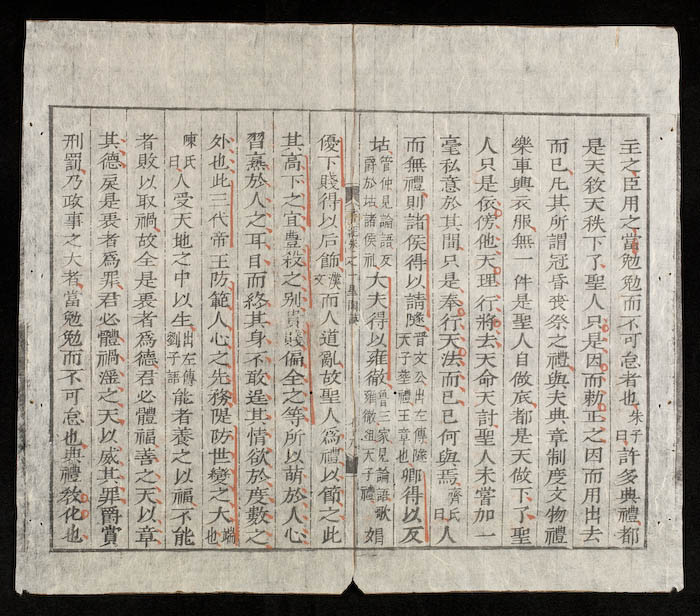 主之臣用之當勉勉而不可怠者也朱子曰許多典禮都
是天敘天秩下了聖人只是因而勑正之因而用出去
而已凡其所謂冠昏喪祭之禮與夫典章制度文物禮
樂車輿衣服無一件是聖人自做底都是天做下了聖
人只是依傍他天理行將去天命天討聖人未嘗加一
毫私意於其間只是奉行天法而已已何與焉齊氏曰人
而無禮則諸侯得以請隧晉文公出左傳隧天子葬禮王章也卿得以反
坫管仲見論語反爵於坫諸侯礼大夫得以雍徹魯三家見論語歌雍徹俎天子禮娼
優下賤得以后飾漢文而人道亂故聖人爲禮以節之此
其高下之宜豐殺之別貴賤偏全之等所以萌於人心
習熏於人之耳目而終其身不敢逞其情欲於度數之
外也此三代帝王防範人心之先務隄防世變之大端也
陳氏曰人受天地之中以生出左傳劉子語能者養之以福不能
者敗以取禍故全是衷者爲德君必體福善之天以章
其德戾是衷者爲罪君必體禍淫之天以威其罪爵賞
刑罰乃政事之大者當勉勉而不可怠也典禮教化也